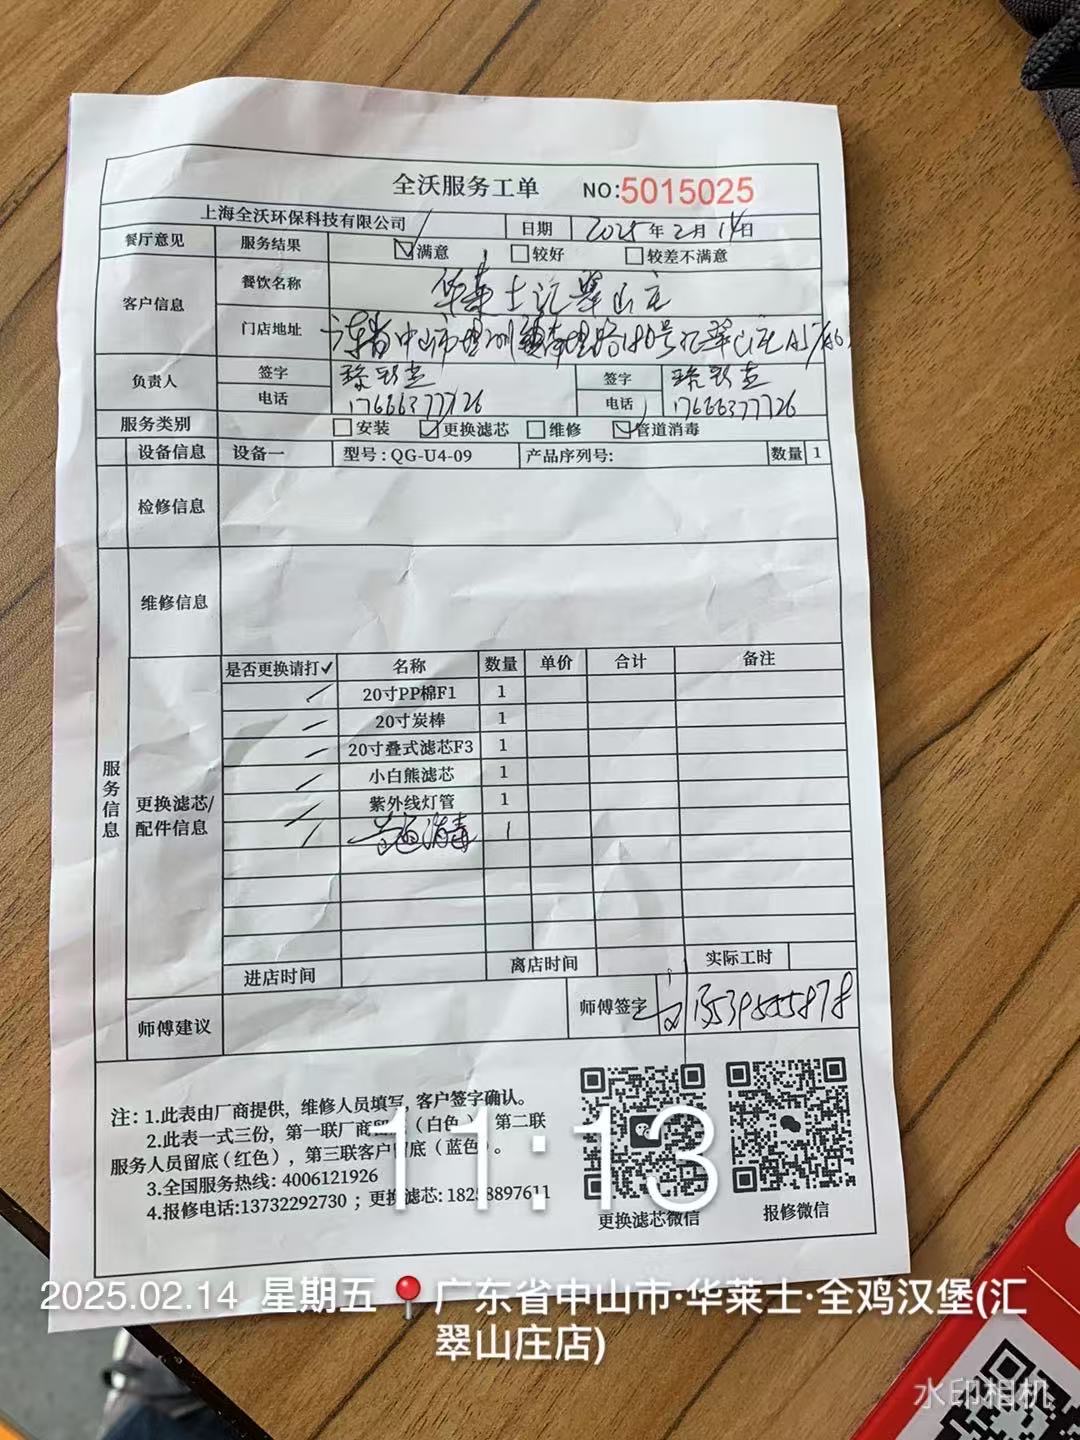 全沃服务工单 NO:5015025
上海全沃环保科技有限公司 日期 2025年2月14日
餐厅意见 服务结果 满意 较好 较差不满意
客户信息 餐饮名称 华莱士汇翠山庄
门店地址 广东省中山市坦洲镇坦路180号汇翠山庄A5/A6
负责人 签字 签字
电话 17666377726 电话 17666377726
服务类别 安装 更换滤芯 维修 管道消毒
设备信息 设备一 型号:QG-U4-09 产品序列号: 数量 1
检修信息
维修信息
服务信息
更换滤芯/配件信息
是否更换请打✓ 名称 数量 单价 合计 备注
20寸PP棉F1 1
20寸炭棒 1
20寸叠式滤芯F3 1
小白熊滤芯 1
紫外线灯管 1
管道消毒 1
进店时间 离店时间 实际工时
师傅建议 师傅签字 13539555878
注:1.此表由厂商提供，维修人员填写，客户签字确认。
2.此表一式三份，第一联厂商留底（白色），第二联
服务人员留底（红色），第三联客户留底（蓝色）。
3.全国服务热线:4006121926
4.报修电话:13732292730；更换滤芯:18258897611
更换滤芯微信 报修微信
11:13
2025.02.14 星期五 广东省中山市·华莱士·全鸡汉堡(汇
翠山庄店)
水印相机